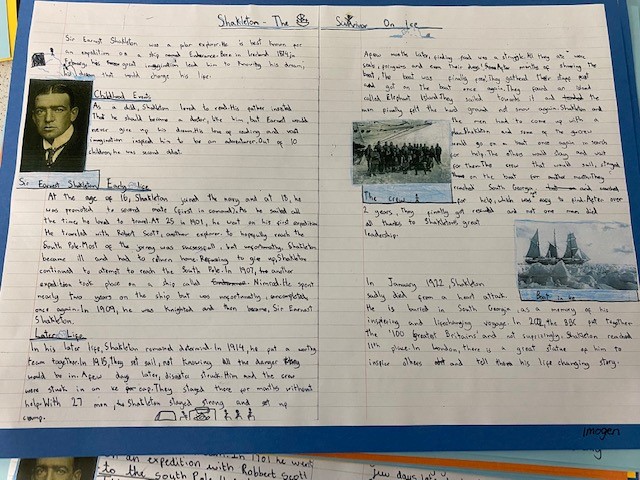 Shakleton - The Survivor On Ice
Sir Earnest Shakleton was a polar explorer. He is best known for
an expedition on a ship named Endurance. Born in Ireland 1874, in
great imagination lead him to the worthy his dream;
his dream that would change his life.
Childhood Events
As a child, Shakleton loved to read. His father insisted
That he should become a doctor, like him, but Earnest would
never give up his dream. His love of reading and vast
imagination inspired him to be an adventurer. Out of 10
children, he was second oldest.
Sir Earnest Shakleton Early life
At the age of 16, Shakleton joined the navy and at 18, he
was promoted to second mate (first in command). As he sailed all
the time, he loved to travel. At 25 in 1901, he went on his first expedition
He traveled with Robert Scott, another explorer. to hopefully reach the
South Pole. Most of the jorney was successfull, but unfortunatly, Shakleton
became ill and had to return home. Refuseing to give up, Shakleton
continued to atemot to reach the South Pole. In 1907, another
expedition took place on a ship called Nimrod. He spent
nearly two years on the ship but was unfortunatly, uncompleted
once again. In 1909, he was knighted and then became, Sir Earnest
Shakleton.
Later Life
In his later life, Shakleton remaned determined. In 1914, he put a worthy
team together. In 1915, They set sail, not knowing all the danger they
would be in. A few days later, disaster struck. Him and the crew
were struck in an ice per cap. They stayed there for months without
help. With 27 men, Shakleton stayed strong and set up
camp.
A few months later, finding food was a struggle. All they ate were
seals, penguins and even their dogs! After months of sharing the
boat, the boat was finally free. They gathered there stuff and
got on the boat once again. They found an island
called Elephant Island. They sailed towards it and the
men finally felt hard ground and snow again. Shakleton and
the men had to come up with a
plan. Shakleton and some of the crew
would go on a boat once again in search
for help. The others would stay and wait
for them. The crew that would sail, stayed
on the boat for months. They
reached South Georgia
The crew
for help, which was easy to find. After over
2 years, They finally got rescued and not one man died
all thanks to Shakleton's great
leadership.
Boat in ice
In January 1922, Shakleton
sadly died from a heart attack.
He is burried in South Georgia, as a memory of his
inspiering and lifechanging voyage. In 2002, the BBC put together
The '100 Greatest Britains' and not suprisingly, Shakleton reached
11th place. In London, there is a great statue of him to
inspire others and tell them his life changing story.
imogen
on an expedition with Robbert Scott
to the South Pole
few days late